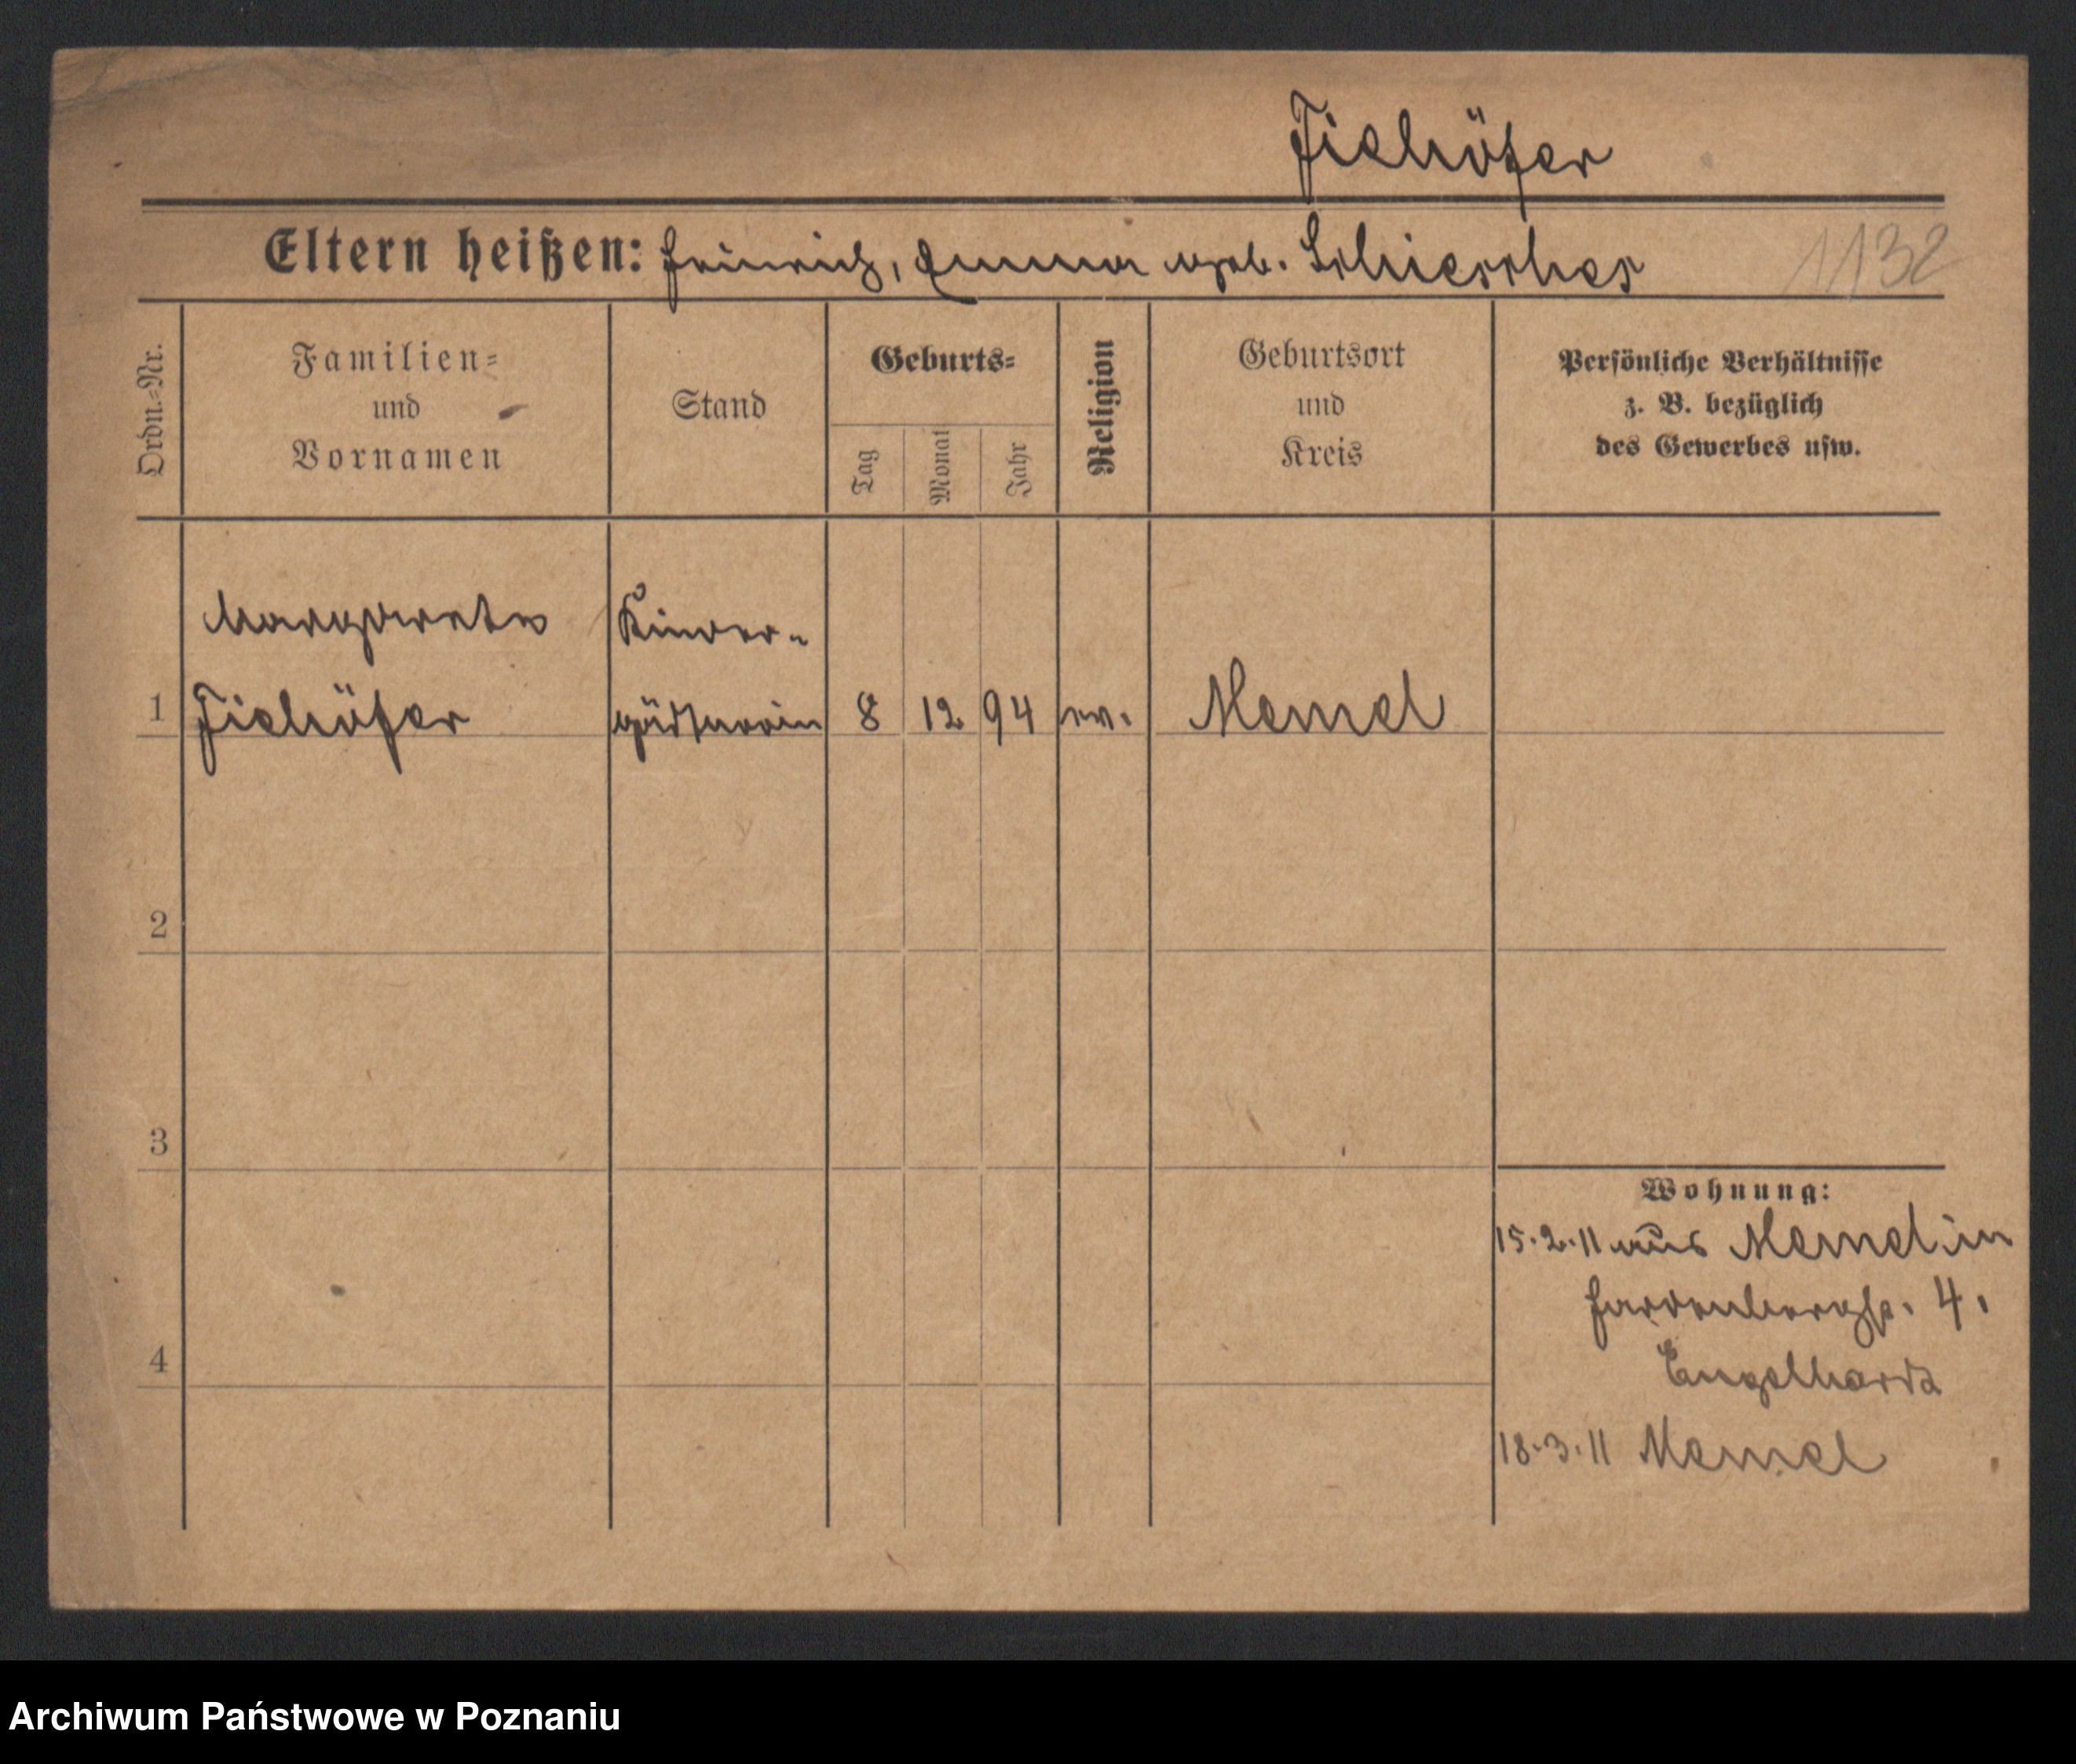 Fichöfer
Eltern heißen: Heinrich, Emma geb.
1132
Ordn.-Nr.
Familien-
und
Vornamen
Stand
Geburts-
Tag
Monat
Jahr
Religion
Geburtsort
und
Kreis
Persönliche Verhältnisse
z. B. bezüglich
des Gewerbes usw.
Margarete Kinder-
1 Fichöfer gärtnerin 8 12 94 ev. Memel
2
3
Wohnung:
15.2.11 aus Memel in
Hardenbergstr. 4.
4
Engelhardt
18.3.11 Memel
Archiwum Państwowe w Poznaniu